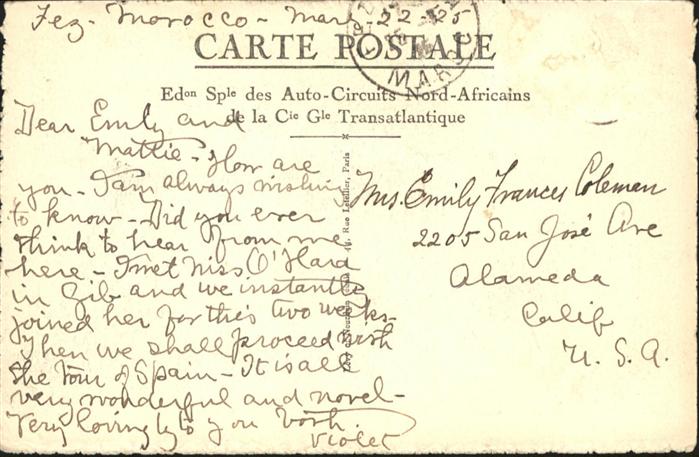 Fez - Morocco - Mar - 22 - 25
CARTE POSTALE
MAROC
Edon Sple des Auto-Circuits Nord-Africains
de la Cie Gle Transatlantique
Dear Emily and
Mattie - How are
you - I am always wishing
to know - Did you ever
think to hear from me
here - I met Miss O'Hara
in Gib and we instantly
joined her for this two weeks -
Then we shall proceed with
the tour of Spain - It is all
very wonderful and novel -
Very lovingly to you both.
Violet
Rue Letellier, Paris
Mrs. Emily Frances Coleman
2205 San José Ave
Alameda
Calif
U. S. A.